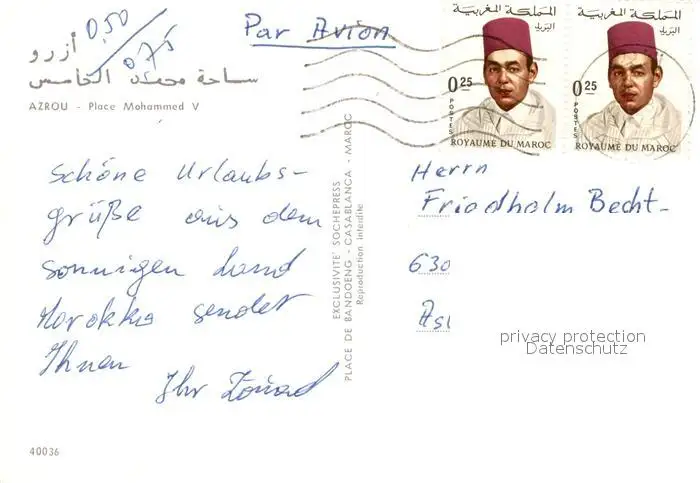 أزرو
ساحة محمد الخامس
AZROU - Place Mohammed V
0,50
0,75
Par Avion
المملكة المغربية
البريد
0.25
POSTES
ROYAUME DU MAROC
المملكة المغربية
البريد
0.25
POSTES
ROYAUME DU MAROC
Schöne Urlaubs-
grüße aus dem
sonnigen Land
Marokko sendet
Ihnen
Ihr
EXCLUSIVITÉ SOCHEPRESS
PLACE DE BANDOENG - CASABLANCA - MAROC
Reproduction interdite
Herrn
Friedholm Becht-
630
Asl
privacy protection
Datenschutz
40036